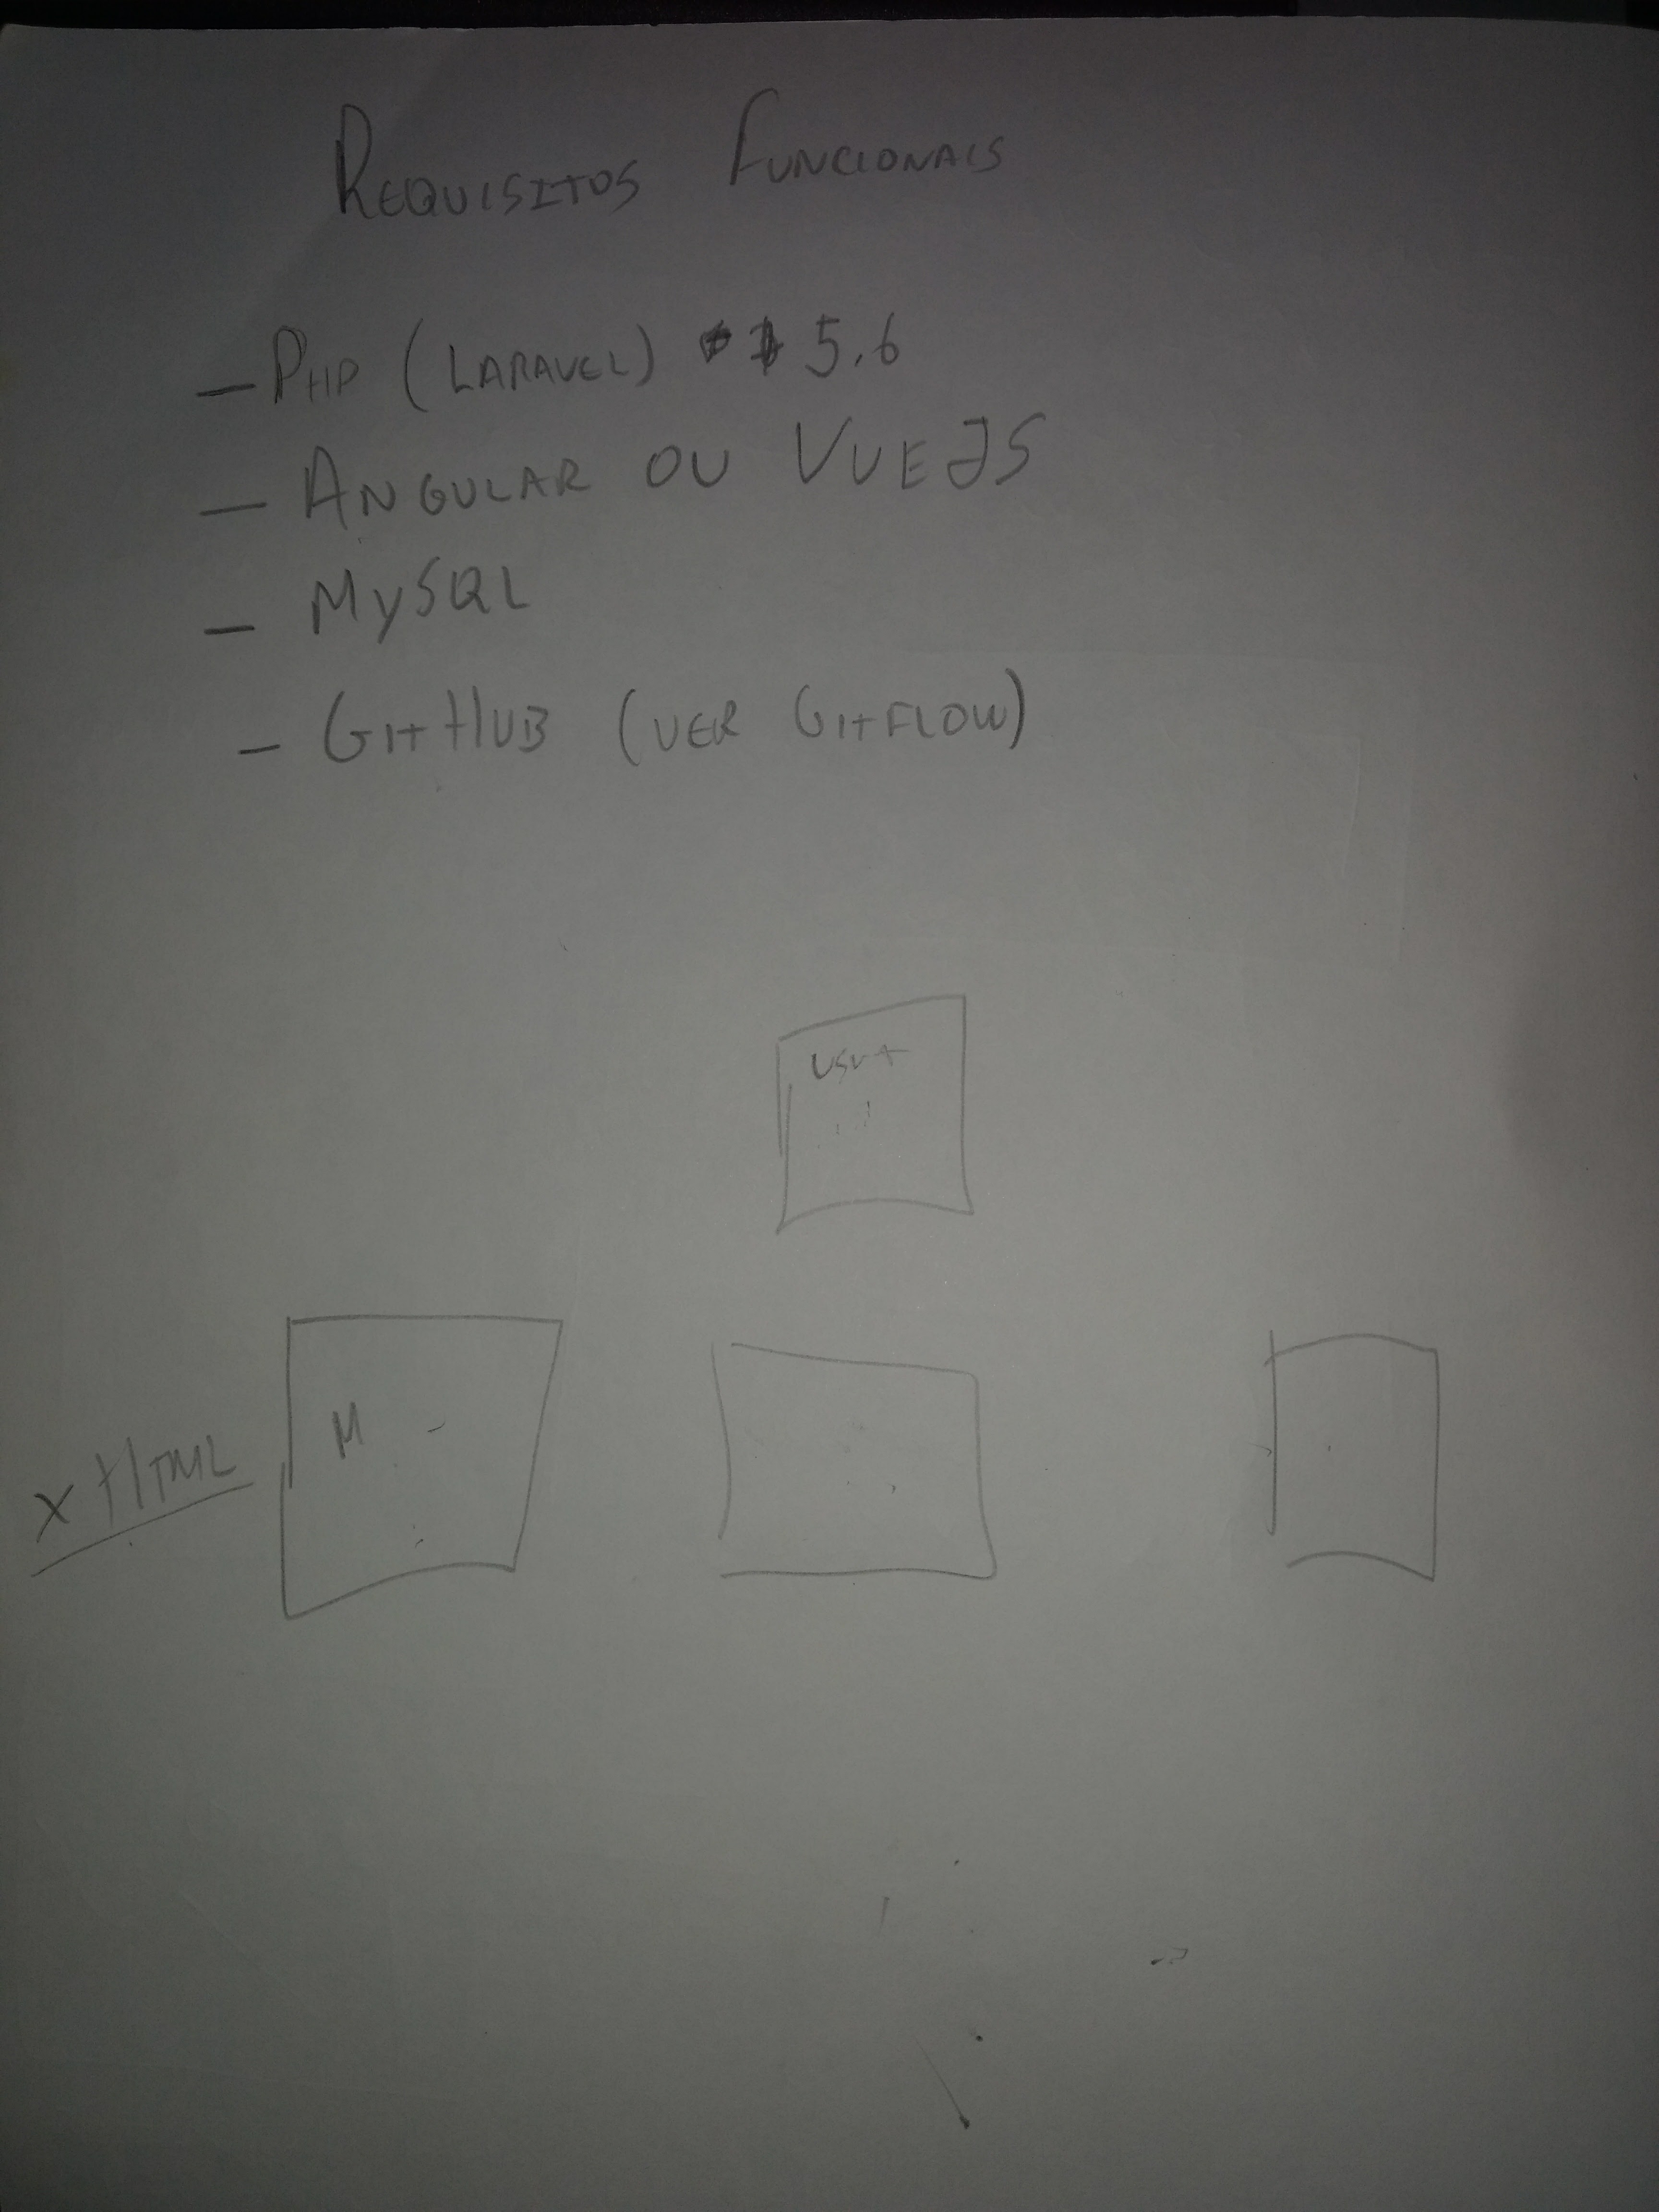 REQUISITOS FUNCIONAIS
- PHP (LARAVEL) 5.6
- ANGULAR OU VUEJS
- MySQL
- GitHUB (VER GITFLOW)
M
XHTML